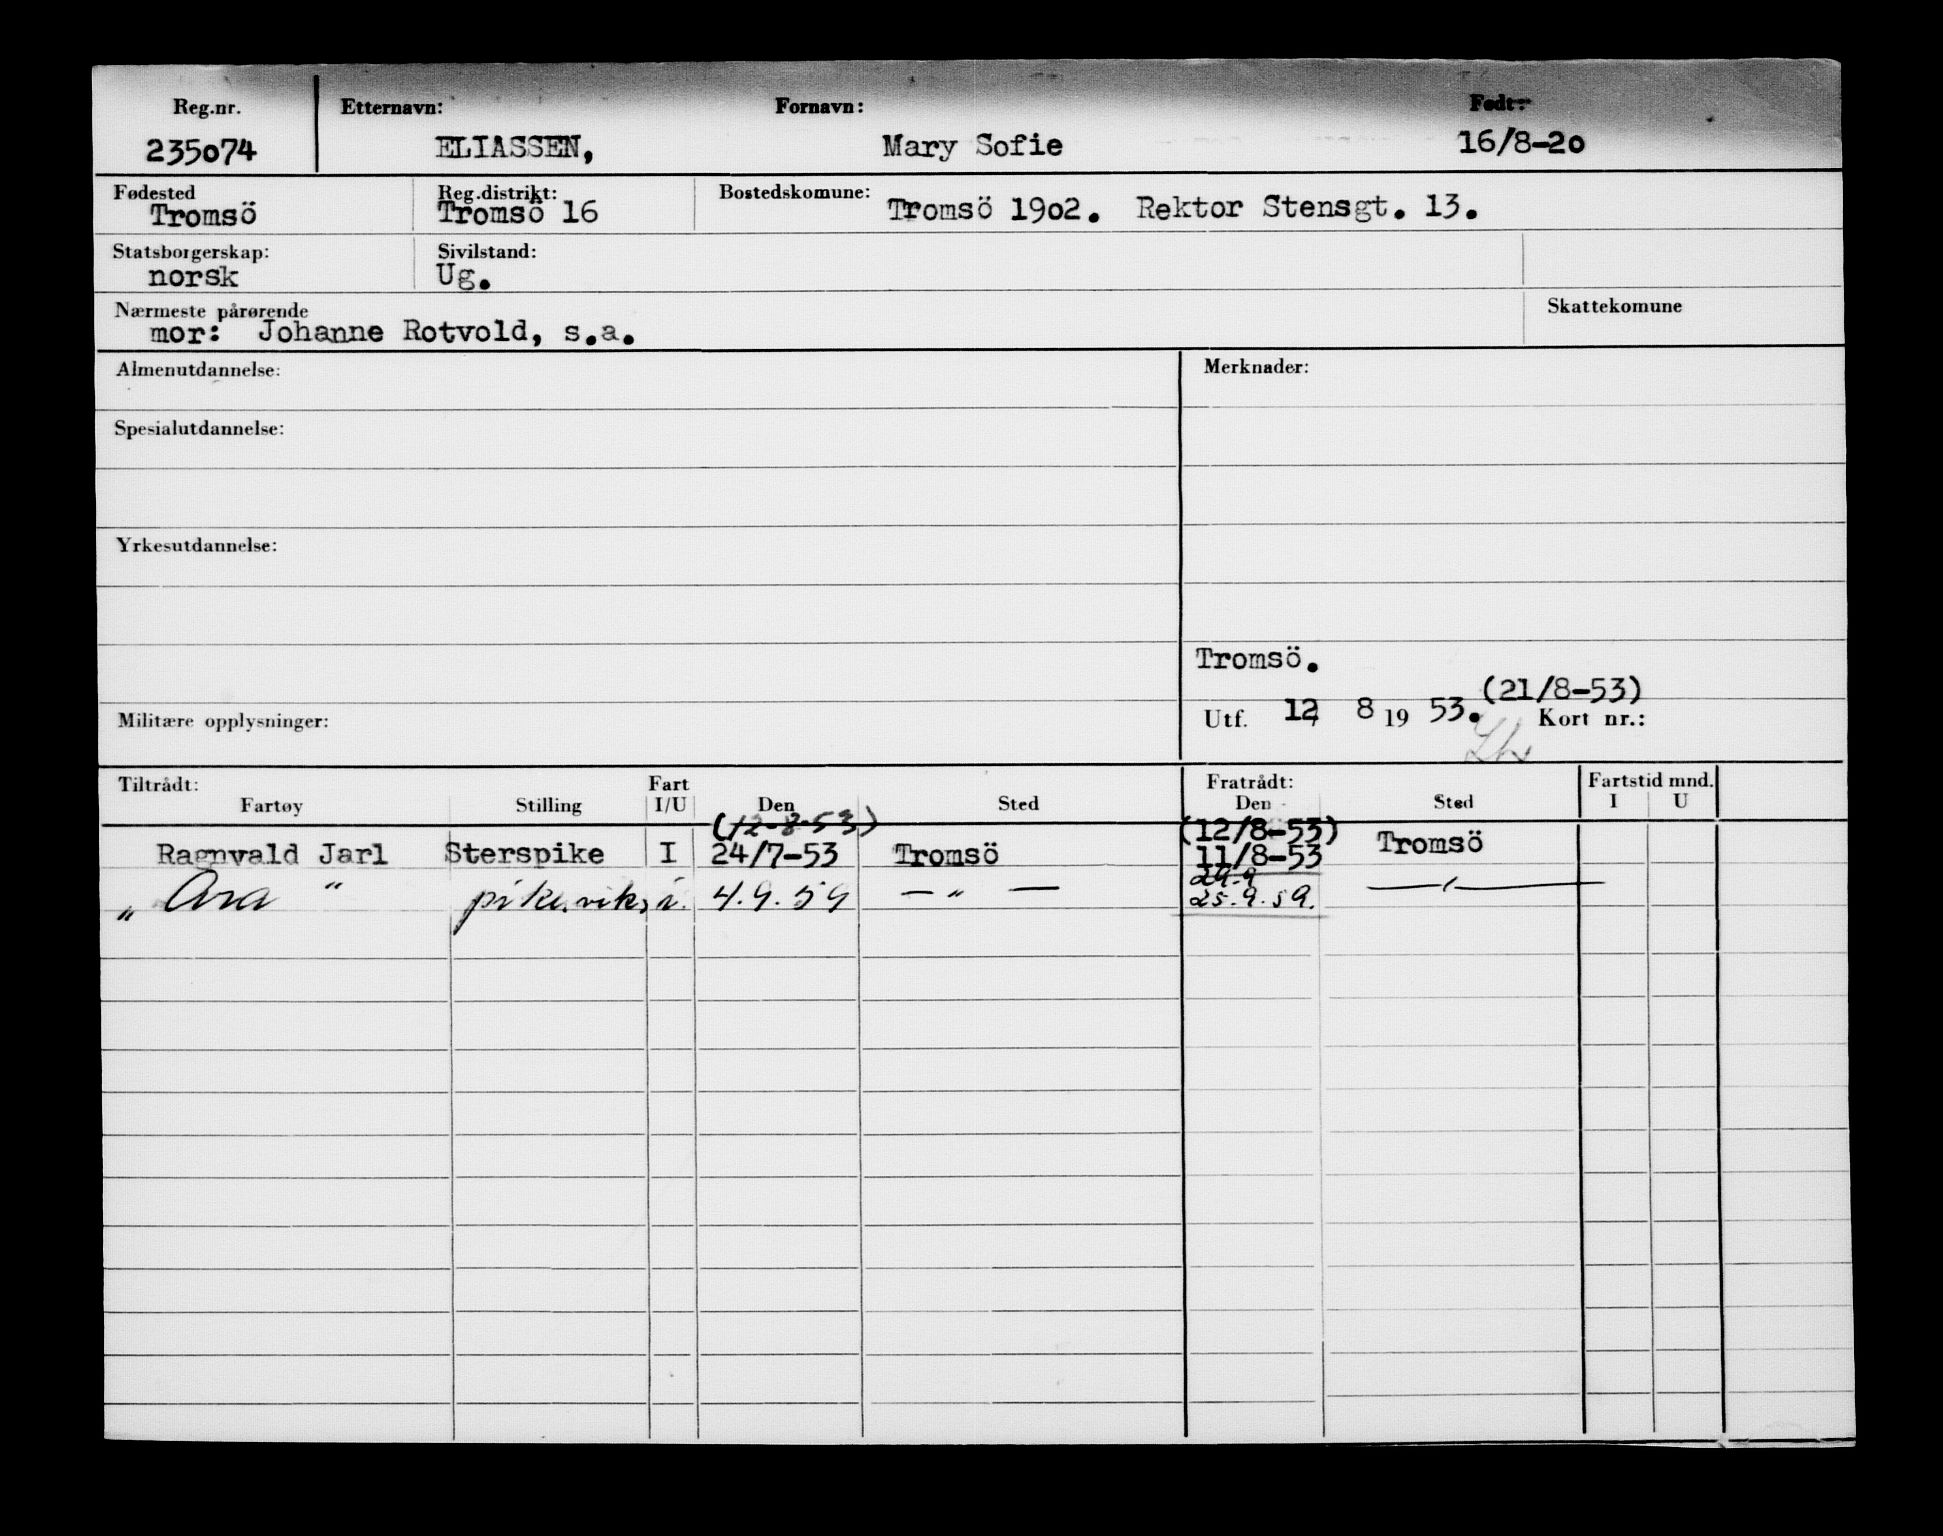 Reg.nr. Etternavn: Fornavn: Født:
235o74 ELIASSEN, Mary Sofie 16/8-2o
Fødested Reg.distrikt: Bostedskomune:
Tromsö Tromsö 16 Tromsö 19o2. Rektor Stensgt. 13.
Statsborgerskap: Sivilstand:
norsk Ug.
Nærmeste pårørende Skattekomune
mor: Johanne Rotvold, s.a.
Almenutdannelse: Merknader:
Spesialutdannelse:
Yrkesutdannelse:
Tromsö.
(21/8-53)
Militære opplysninger: Utf. 12 8 19 53. Kort nr.:
Tiltrådt: Fart Fratrådt: Fartstid mnd.
Fartøy Stilling I/U Den Sted Den Sted I U
(12-8-53) (12/8-53)
Ragnvald Jarl Sterspike I 24/7-53 Tromsö 11/8-53 Tromsö
29.9
" Ara " pike.vik, i. 4.9.59 — " — 25.9.59. — " —